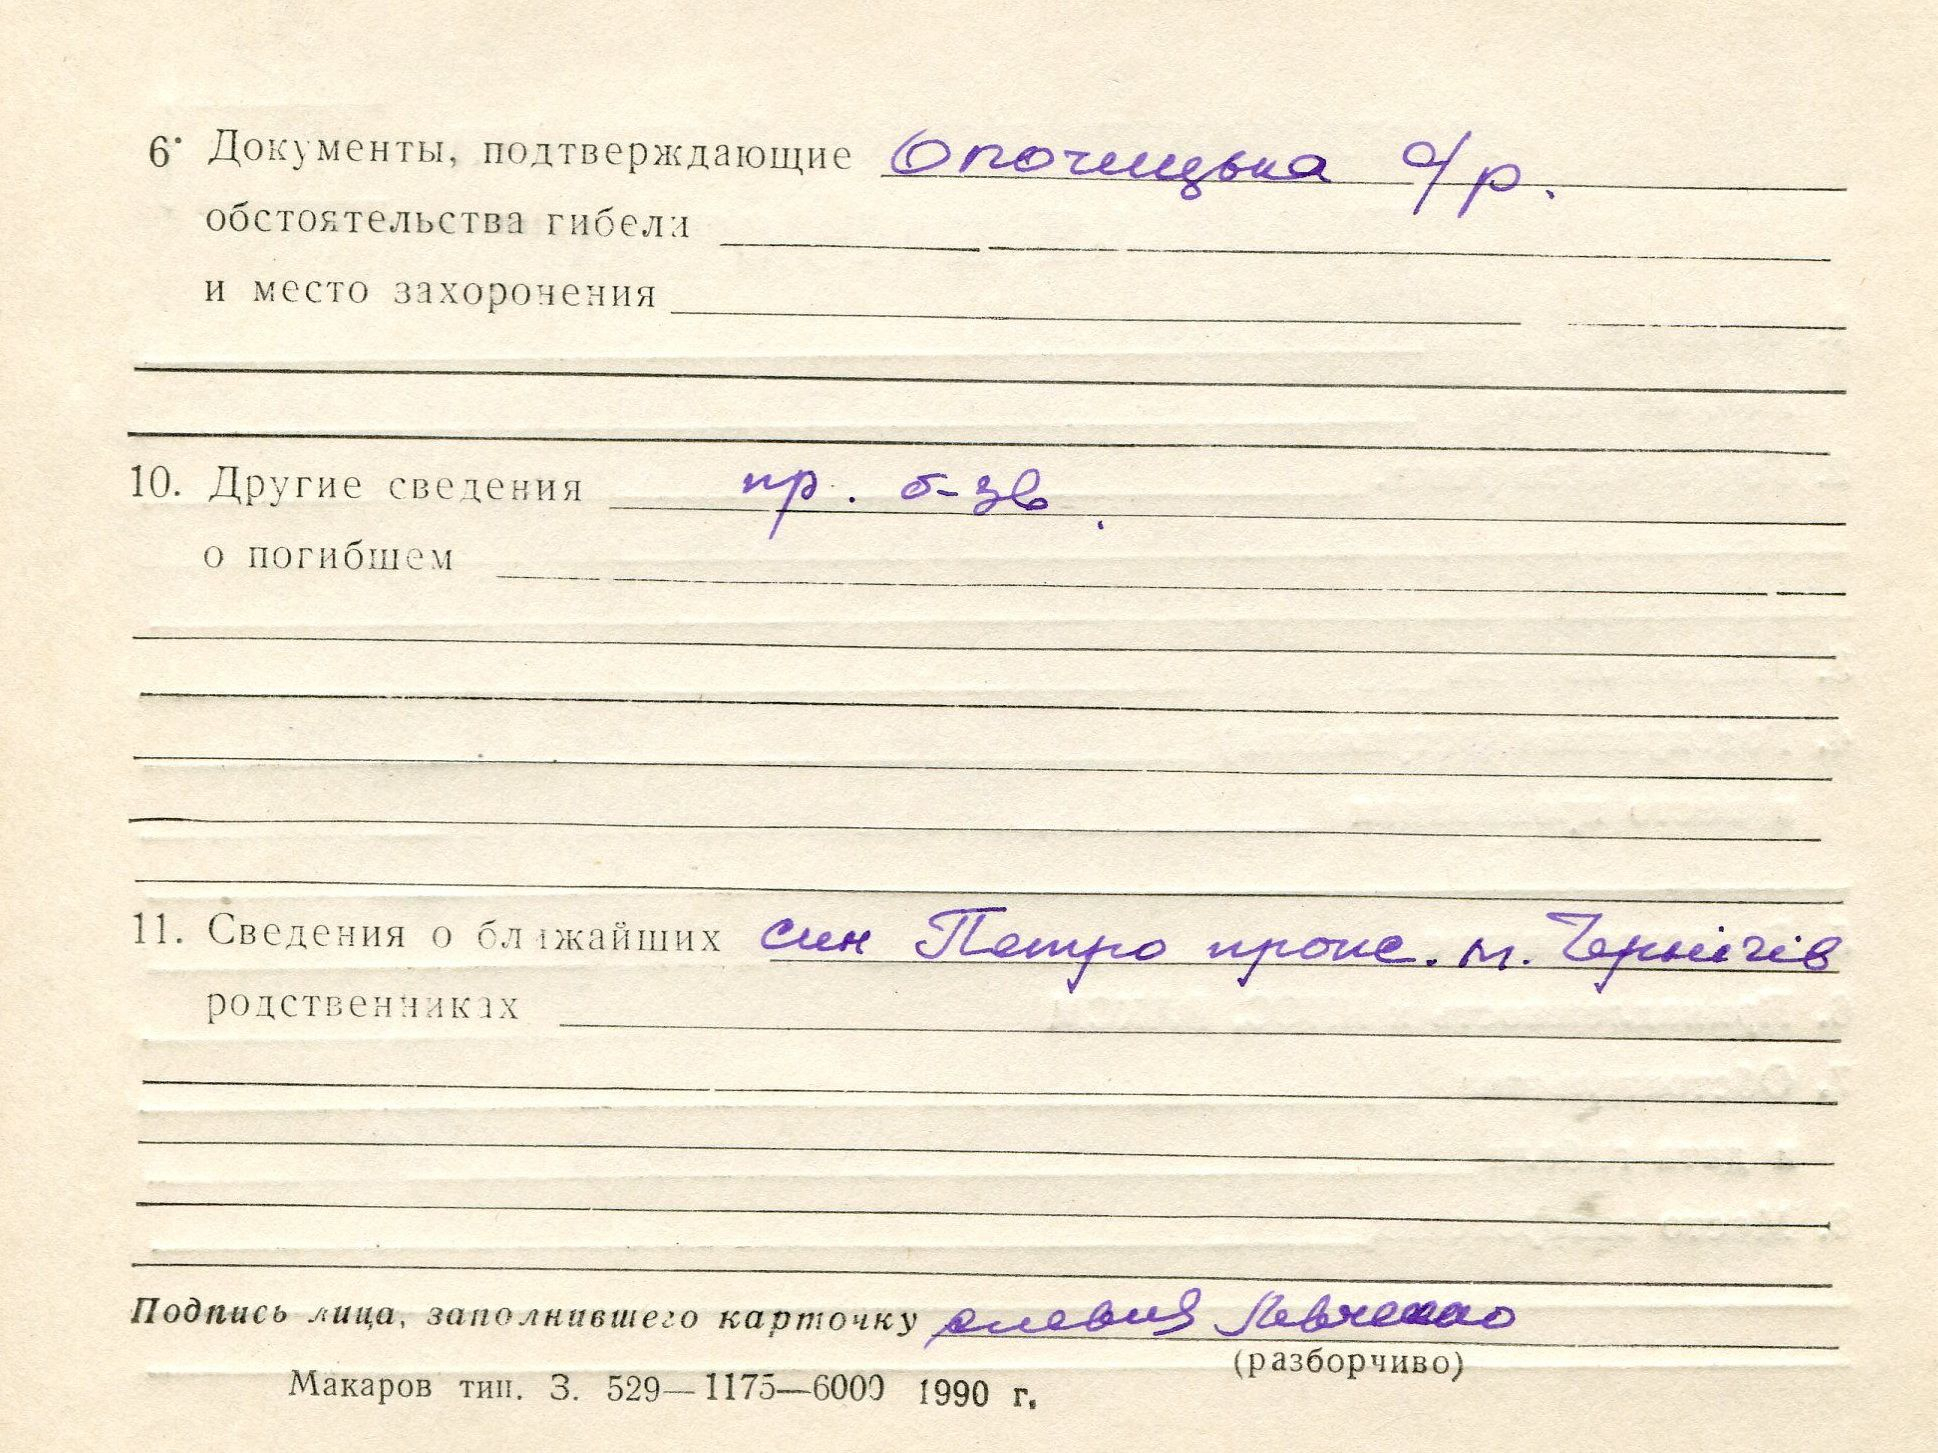 6. Документы, подтверждающие Опочицька с/р.
обстоятельства гибели
и место захоронения
10. Другие сведения пр. б-зв.
о погибшем
11. Сведения о ближайших син Петро прож. м. Чернігів
родственниках
Подпись лица, заполнившего карточку Левченко
(разборчиво)
Макаров тип. З. 529—1175—6000 1990 г.